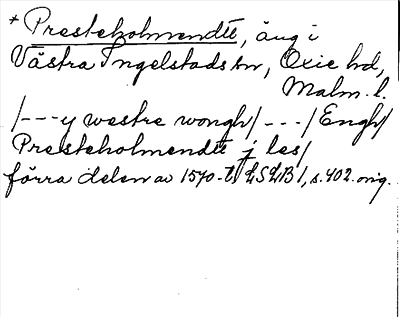 * Presteholmendtt, äng i
Västra Ingelstads sn, Oxie hd,
Malm. l.
/---y westre wongh/---/Engh/
Presteholmendtt j les/
förra delen av 1570-t. LSLB 1, s. 402. orig.